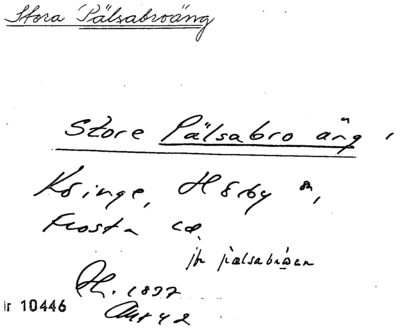 Stora Pälsabroäng
Store Pälsabro äng,
Hörby sn,
Frosta
jfr pälsabroen
1837
Akt 42
Ir 10446